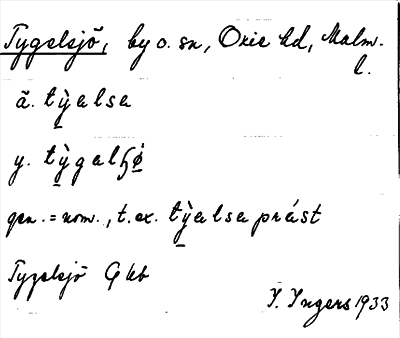 Tygelsjö, by o. sn, Oxie hd, Malm.
l.
ä. tỳalsa
y. tỳgalɧø̀
gen. = nom., t. ex. tỳalsa prást
Tygelsjö Gkb
I. Ingers 1933